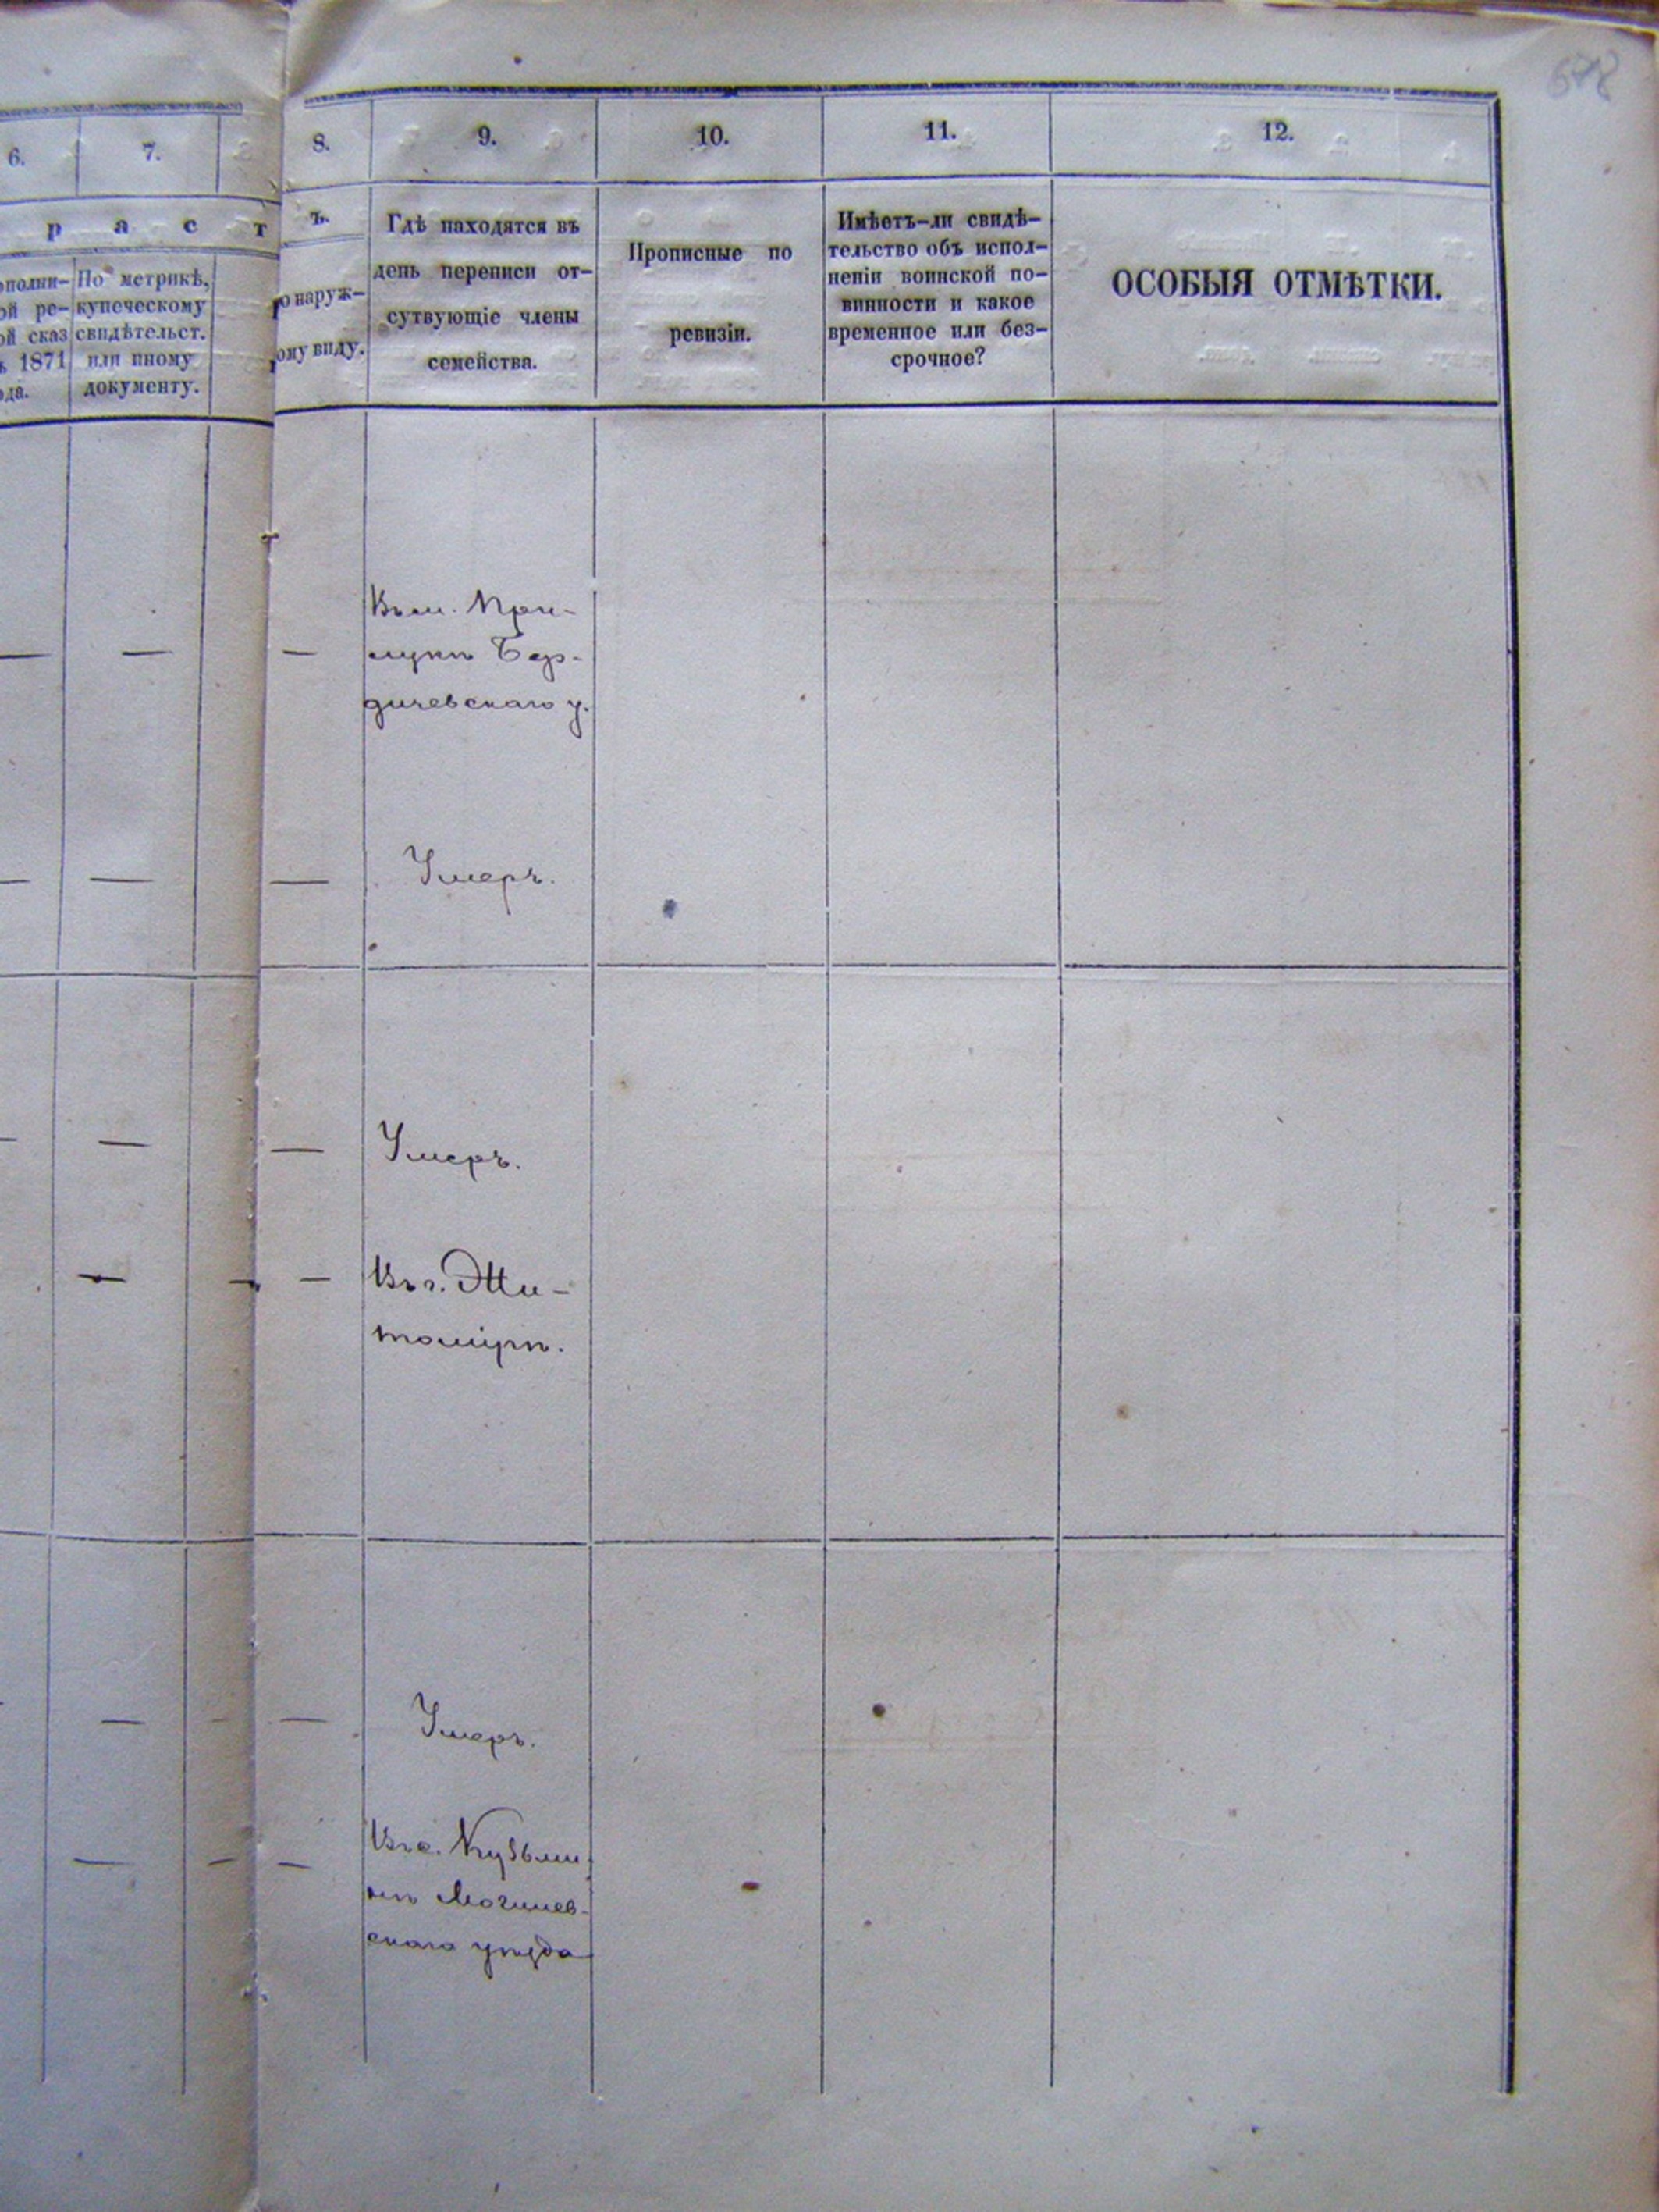 678
6. 7. 8. 9. 10. 11. 12.
р а с т ъ.
ополни- По метрикѣ,
ой ре- купеческому
ой сказ свидѣтельст.
ъ 1871 или иному
ода. документу.
о наруж-
ому виду.
Гдѣ находятся въ
день переписи от-
сутвующіе члены
семейства.
Прописные по
ревизіи.
Имѣетъ-ли свидѣ-
тельство объ испол-
неніи воинской по-
винности и какое
временное или без-
срочное?
ОСОБЫЯ ОТМѢТКИ.
Въ м. При-
лукѣ Бер-
дичевскаго у.
— — —
Умеръ.
— — —
Умеръ.
— — —
Въ г. Жи-
— — —
томірѣ.
Умеръ.
— — —
Въ с. Кузьми-
— — —
нѣ Могилев-
скаго уѣзда